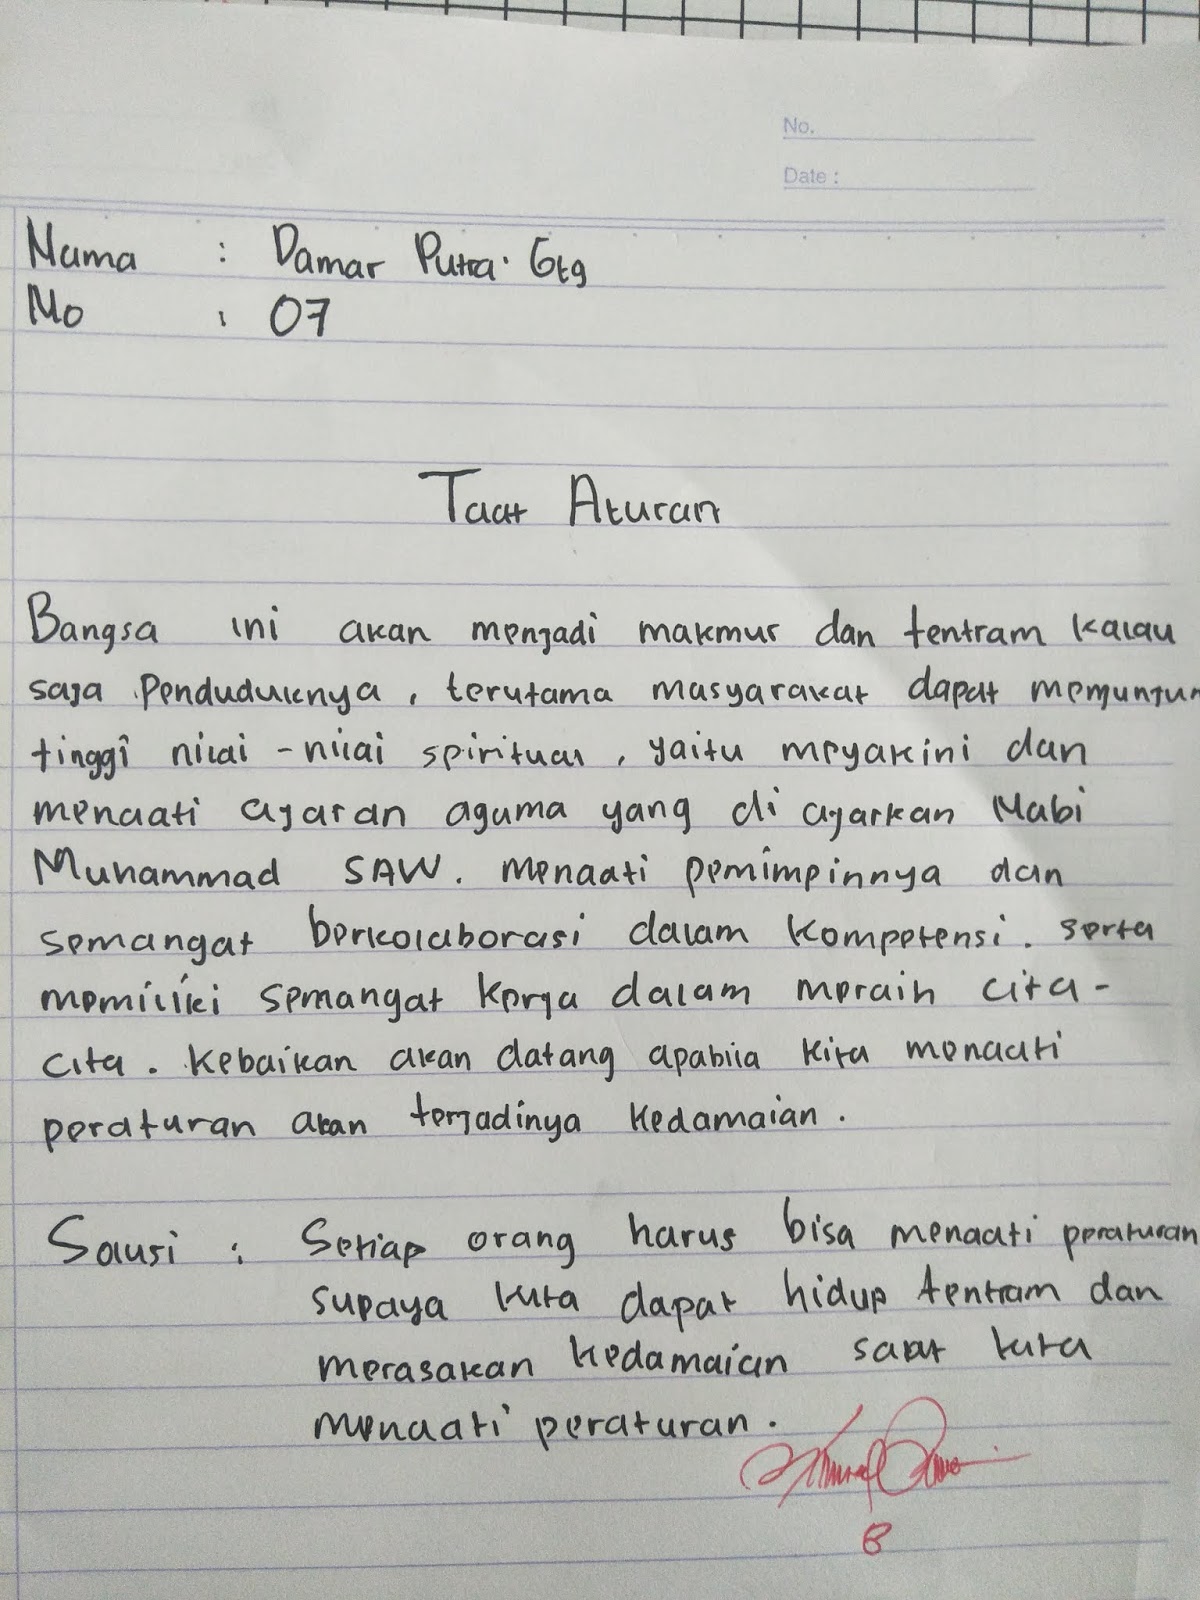 No.
Date :
Nama : Damar Putra. Gtg
No : 07
Taat Aturan
Bangsa ini akan menjadi makmur dan tentram kalau
saja penduduknya, terutama masyarakat dapat menjunjun
tinggi nilai - nilai spiritual, yaitu meyakini dan
menaati ajaran agama yang di ajarkan Nabi
Muhammad SAW. menaati pemimpinnya dan
semangat berkolaborasi dalam kompetensi. serta
memiliki semangat kerja dalam meraih cita -
cita. kebaikan akan datang apabila kita menaati
peraturan akan terjadinya kedamaian.
Solusi : Setiap orang harus bisa menaati peraturan
supaya kita dapat hidup tentram dan
merasakan kedamaian saat kita
menaati peraturan.
B